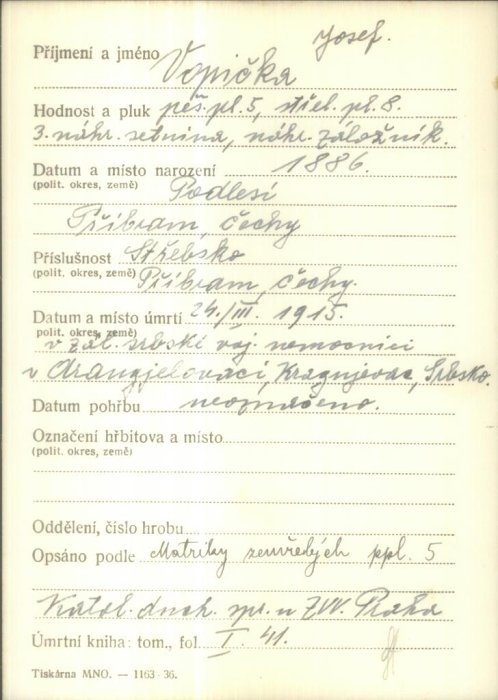 Josef.
Příjmení a jméno Vopička
Hodnost a pluk pěš. pl. 5, střel. pl. 8.
3. náhr. setnina, náhr. záložník.
Datum a místo narození 1886.
(polit. okres, země) Podlesí
Příbram, Čechy
Příslušnost Střebsko
(polit. okres, země) Příbram, Čechy.
Datum a místo úmrtí 24./III. 1915.
(polit. okres, země)
v zál. srbské voj. nemocnici
v Arangjelovaci, Kragujevac, Srbsko.
Datum pohřbu neoznačeno.
Označení hřbitova a místo
(polit. okres, země)
Oddělení, číslo hrobu
Opsáno podle Matriky zemřelých ppl. 5
Katol. duch. spr. u ZVV. Praha
Úmrtní kniha: tom., fol. I. 41.
Tiskárna MNO. — 1163-36.